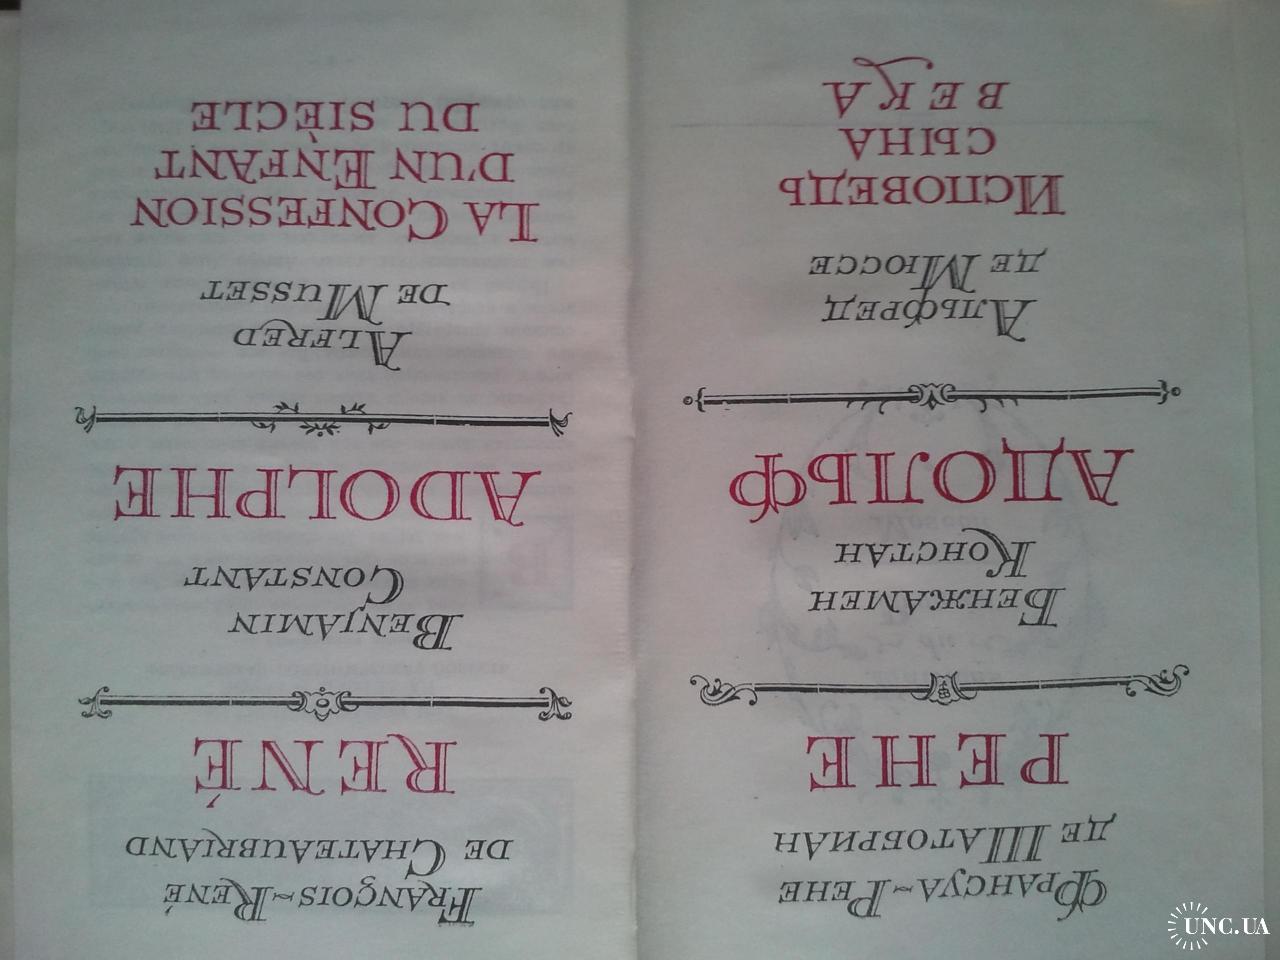 ФРАНСУА~РЕНЕ
ДЕ ШАТОБРИАН
РЕНЕ
БЕНЖАМЕН
КОНСТАН
АДОЛЬФ
АЛЬФРЕД
ДЕ МЮССЕ
ИСПОВЕДЬ
СЫНА
ВЕКА
FRANÇOIS~RENÉ
DE CHATEAUBRIAND
RENÉ
BENJAMIN
CONSTANT
ADOLPHE
ALFRED
DE MUSSET
LA CONFESSION
D'UN ENFANT
DU SIÈCLE
UNC.UA